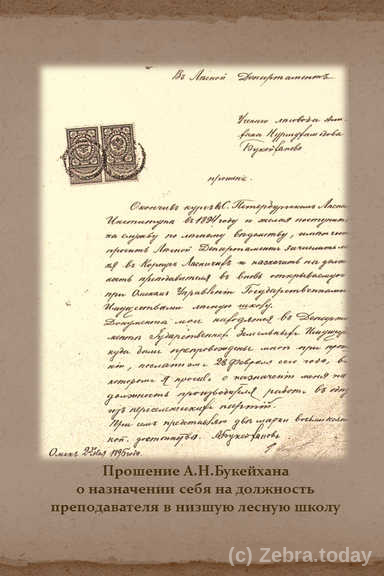 Въ Лѣсной Департаментъ
Ученаго лѣсовода Али-
хана Нурмухамедова
Букейханова
прошенiе.
Окончивъ курсъ С. Петербургскаго Лѣснаго
Института въ 1894 году и желая поступить
на службу по лѣсному вѣдомству,
просить Лѣсной Департаментъ зачислить ме-
ня въ Корпусъ Лѣсничихъ и назначить на долж-
ность преподавателя въ вновь открываемую
при Омскомъ Управленiи Государственными
Имуществами лѣсную школу.
Документы мои находятся въ Департа-
ментѣ Государственныхъ Земельныхъ Имуществъ
куда были препровождены мною при проше-
нiи, 28 Февраля сего года, въ
которомъ я просилъ о назначенiи меня на
должность производителя работъ въ одну
изъ переселенческихъ партiй.
При семъ представляю двѣ марки
коп. достоинства. Абукейхановъ
Омскъ 1895 года.
Прошение А.Н.Букейхана
о назначении себя на должность
преподавателя в низшую лесную школу
(c) Zebra.today